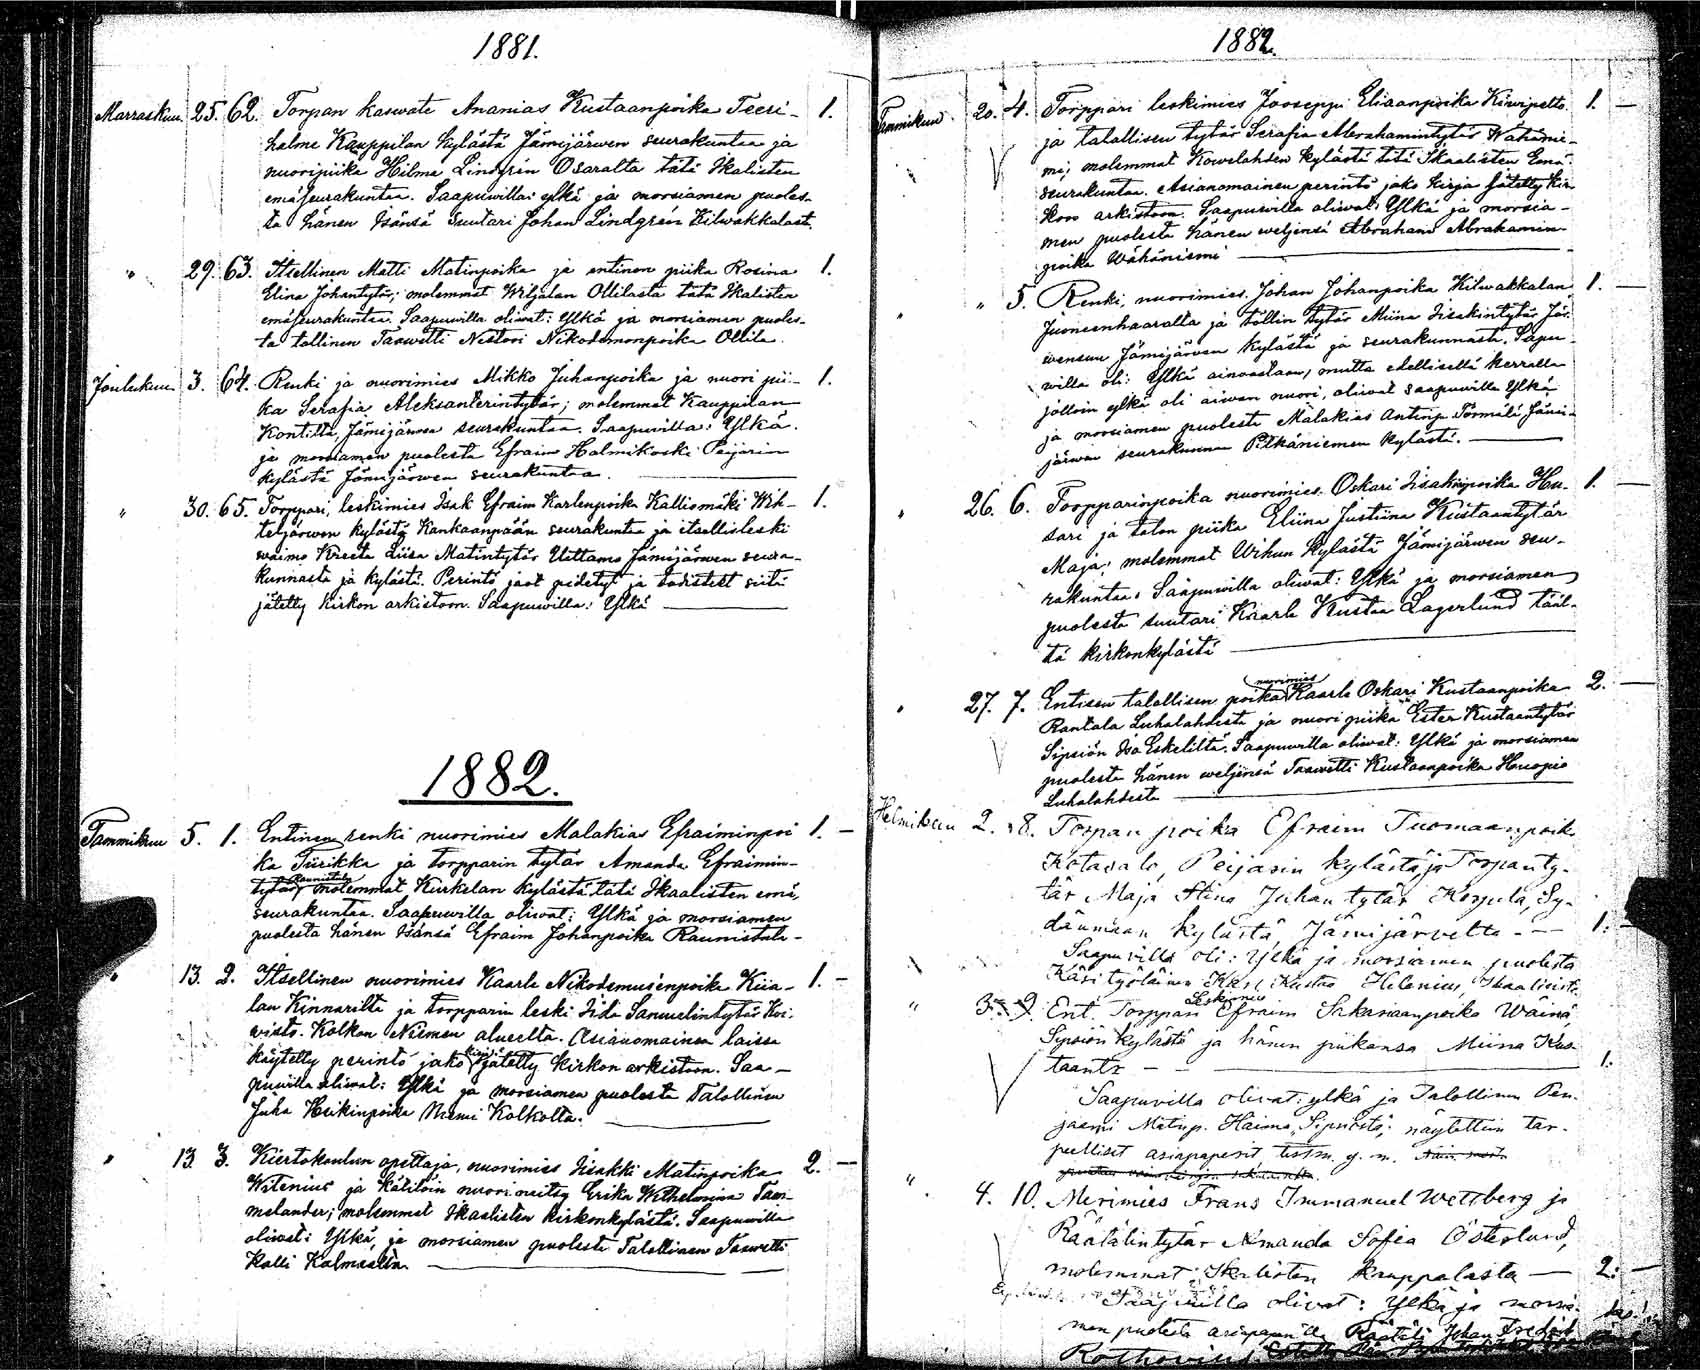 1881.
Marraskuu 25. 62. Torpan kaswate Ananias Kustaanpoika Teeri- 1.
halme Kauppilan kylästä Jämijärwen seurakuntaa ja
nuoripiika Hilma Lindgrén Osaralta tätä Ikalisten
emäseurakuntaa. Saapuwilla: ylkä ja morsiamen puoles-
ta hänen Isänsä Suutari Johan Lindgrén Kilwakkalast.
" 29. 63. Itsellinen Matti Matinpoika ja entinen piika Rosina 1.
Elina Johantytär; molemmat Wiljalan Ollilasta tätä Ikalisten
emäseurakuntaa. Saapuwilla oliwat: Ylkä ja morsiamen puoles-
ta tallinen Taawetti Nestori Nikodemonpoika Ollila.
Joulukuu 3. 64. Renki ja nuorimies Mikko Juhanpoika ja nuori pii- 1.
ka Serafia Aleksanterintytär; molemmat Kauppilan
Kontilta, Jämijärwen seurakuntaa. Saapuwilla: Ylkä.
ja morsiamen puolesta Efraim Halmikoski Peijarin
kylästä Jämijärwen seurakuntaa.
" 30. 65. Torppari, leskimies Isak Efraim Karlenpoika Kalliomäki Wih- 1.
teljärwen kylästä Kankaanpään seurakuntaa ja itsellisleski
waimo Kreeta Liisa Matintytär Uittamo Jämijärwen seura-
kunnasta ja kylästä. Perintö jaot pidetyt ja todistest siitä
jätetty kirkon arkistoon. Saapuwilla: Ylkä
1882.
Tammikuu 5. 1. Entinen renki nuorimies Malakias Efraiminpoi 1. -
ka Tiirikka ja torpparin tytär Amanda Efraimin-
tytär Raunistula molemmat Kurkelan kylästä tätä Ikaalisten emä,
seurakuntaa. Saapuwilla oliwat: Ylkä ja morsiamen
puolesta hänen Isänsä Efraim Johanpoika Raunistula-
" 13. 2. Itsellinen nuorimies Kaarle Nikodemusenpoika Kiia- 1. -
lan Kinnarilta ja torpparin leski Iida Samuelintytär Koi-
wisto. Kolkan Niemen alueelta. Asianomainen laissa
käytetty perintö jako kirja jätetty kirkon arkistoon. Saa-
puwilla oliwat: Ylkä ja morsiamen puolesta Talollinen
Juha Heikinpoika Niemi Kolkolta.
" 13. 3. Kiertokoulun opettaja, nuorimies Iisakki Matinpoika 2. -
Witenius ja kätilön nuori neitsy Erika Wilhelmina Tam-
melander; molemmat Ikaalisten kirkonkylästä. Saapuwilla
oliwat: Ylkä, ja morsiamen puolesta Talollinen Taawetti
Kalli Kalmaalta.
1882.
Tammikuu 20. 4. Torppari leskimies Jooseppi Eliaanpoika Kiwipelto 1. -
ja talallisen tytär Serafia Abrahamintytär Wähänie-
mi; molemmat Kowelahden kylästä tätä Ikaalisten Emä
seurakuntaa. Asianomainen perintö jako kirja jätetty kir-
koon arkistoon. Saapuwilla oliwat: Ylkä ja morsia-
men puolesta hänen weljensä Abraham Abrahamin-
poika Wähäniemi
" " 5. Renki, nuorimies, Johan Johanpoika Kilwakkalan 1. -
Juoneenhaaralta ja töllin tytär Miina Iisakintytär Jär-
wensuu Jämijärwen kylästä ja seurakunnasta. Sapu-
willa oli: Ylkä ainoastaan, mutta edellisellä kerralla
jolloin ylkä oli aiwan nuori, oliwat saapuwilla Ylkä
ja morsiamen puolesta Malakias Antinp. Törmälä Jämi-
järwen seurakunnan Pitkäniemen kylästä.
" 26. 6. Torpparinpoika nuorimies. Oskari Iisakinpoika Hu- 1. -
sari ja talon piika Eliina Justiina Kustaantytär
Maja; molemmat Wihun kylästä Jämijärwen seu-
rakuntaa. Saapuwilla oliwat: Ylkä ja morsiamen
puolesta suutari Kaarle Kustaa Lagerlund tääl-
tä kirkonkylästä
" 27. 7. Entisen talollisen poika nuorimies Kaarle Oskari Kustaanpoika 2. -
Rantala Luhalahdesta ja nuori piika Ester Kustaantytär
Sipsiön Iso Eskeliltä. Saapuwilla oliwat: Ylkä ja morsiamen
puolesta hänen weljensä Taawetti Kustaanpoika Huopio
Luhalahdesta
Helmikuu 2. 8. Torpan poika Efraim Tuomaanpoik.
Katasalo, Peijarin kylästä ja Torpanty-
tär Maja Stina Juhantytär Korpula, Sy-
dänmaan kylästä, Jämijärveltä. - 1. -
Saapuvilla oli: Ylkä ja morsiamen puolesta
Käsityöläinen Karl Kustaa Helenius, Ikaalisista.
" 3. 9. Ent. Torppari Leskimies Efraim Sakariaanpoika Wäinä,
Sipsiön kylästä ja hänen piikansa Miina Kus-
taantr - 1.
Saapuvilla olivat: ylkä ja Talollinen Pen-
jami Matinp. Haima, Sipsiöstä; näytettiin tar-
peelliset asiapaperit
" 4. 10. Merimies Frans Immanuel Wettberg ja
Räätälintytär Amanda Sofia Österlund,
molemmat Ikalisten kauppalasta - 2. -
Saapuvilla olivat: Ylkä ja morsia-
men puolesta Räätäli Johan Fredrik
Rothovius